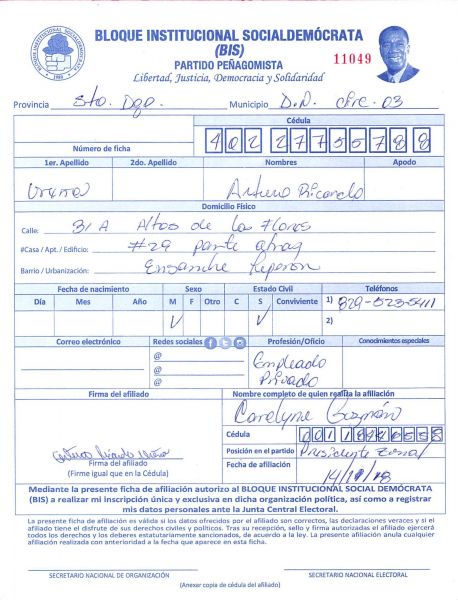 BLOQUE INSTITUCIONAL SOCIALDEMÓCRATA
(BIS)
PARTIDO PEÑAGOMISTA
11049
Libertad, Justicia, Democracia y Solidaridad
Provincia Sto. Dgo. Municipio D.N. circ-03
Cédula
Número de ficha 402 2775578 8
1er. Apellido 2do. Apellido Nombres Apodo
Arturo Ricardo
Domicilio Físico
Calle: 31 A Altos de las Flores
#Casa / Apt. / Edificio: #29 parte atras
Barrio / Urbanización: Ensanche Luperon
Fecha de nacimiento Sexo Estado Civil Teléfonos
Día Mes Año M F Otro C S Conviviente 1) 829-523-5411
V V 2)
Correo electrónico Redes sociales Profesión/Oficio Conocimientos especiales
@ Empleado
@ Privado
@
Firma del afiliado Nombre completo de quien realiza la afiliación
Carelyne Guzmán
Cédula 001
Posición en el partido Presidente Zonal
Firma del afiliado
(Firme igual que en la Cédula)
Fecha de afiliación 14/11/18
Mediante la presente ficha de afiliación autorizo al BLOQUE INSTITUCIONAL SOCIAL DEMÓCRATA
(BIS) a realizar mi inscripción única y exclusiva en dicha organización política, así como a registrar
mis datos personales ante la Junta Central Electoral.
La presente ficha de afiliación es válida si los datos ofrecidos por el afiliado son correctos, las declaraciones veraces y si el
afiliado tiene el disfrute de sus derechos civiles y políticos. Tras su recepción, sello y firma autorizadas el afiliado ejercerá
todos los derechos y los deberes estatutariamente sancionados, de acuerdo a la ley. La presente afiliación anula cualquier
afiliación realizada con anterioridad a la fecha que aparece en esta ficha.
SECRETARIO NACIONAL DE ORGANIZACIÓN SECRETARIO NACIONAL ELECTORAL
(Anexar copia de cédula del afiliado)